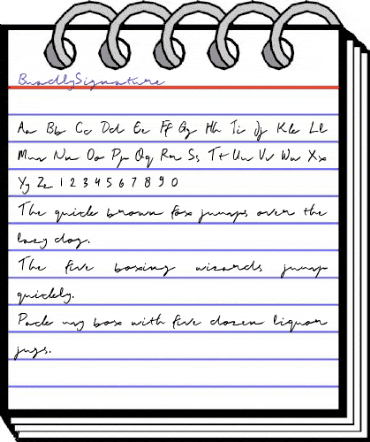 BradlySignature
Aa Bb Cc Dd Ee Ff Gg Hh Ii Jj Kk Ll
Mm Nn Oo Pp Qq Rr Ss Tt Uu Vv Ww Xx
Yy Zz 1 2 3 4 5 6 7 8 9 0
The quick brown fox jumps over the
lazy dog.
The five boxing wizards jump
quickly.
Pack my box with five dozen liquor
jugs.